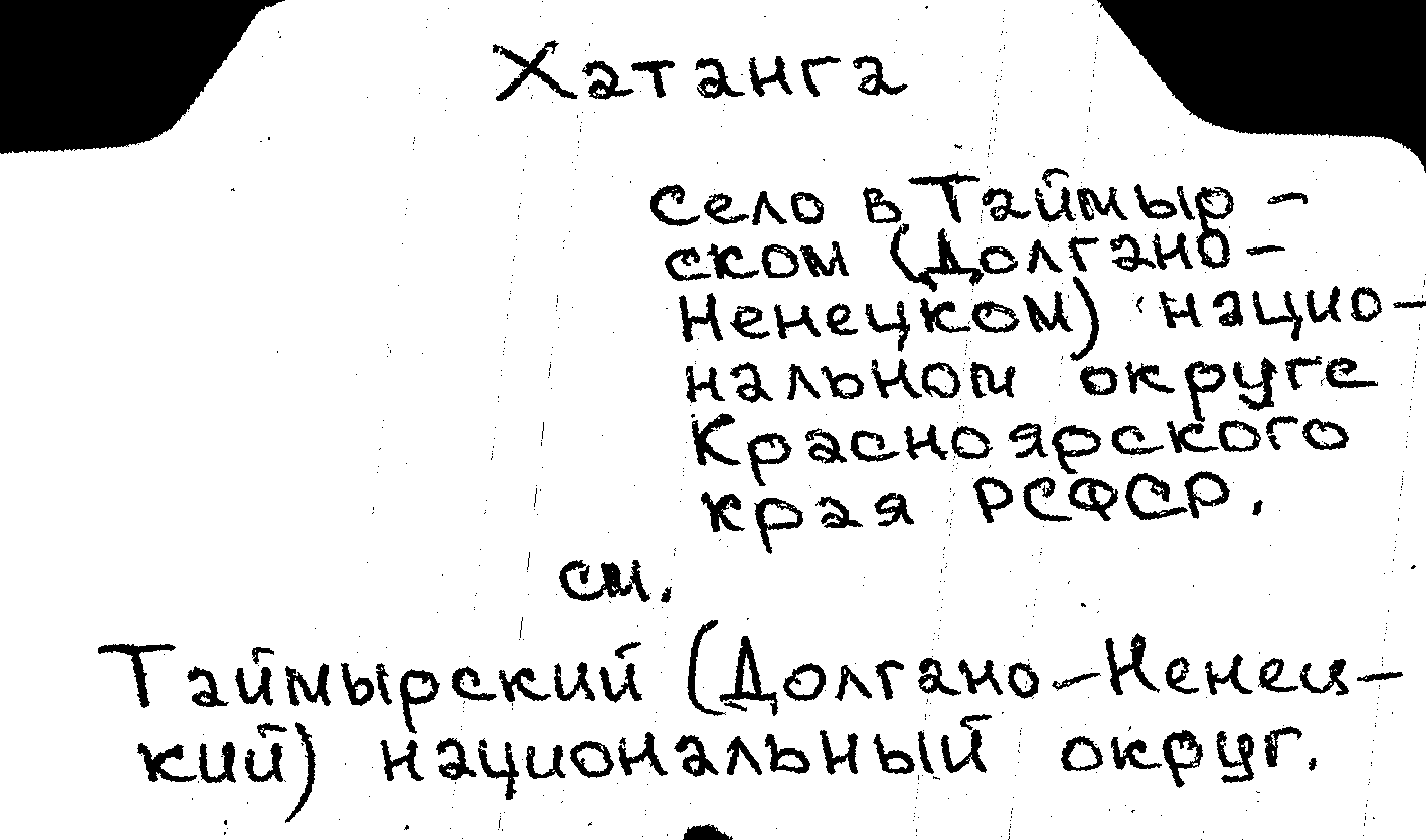 Хатанга
село в Таймыр-
ском (Долгано-
Ненецком) нацио-
нальном округе
Красноярского
края РСФСР.
см.
Таймырский (Долгано-Ненец-
кий) национальный округ.